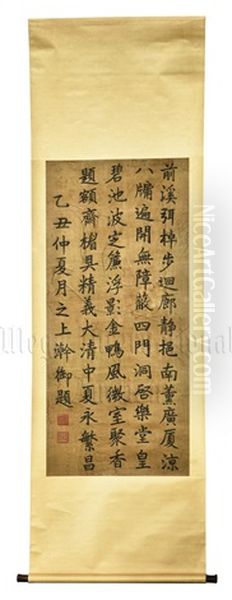 前溪弭棹步迴廊静挹南薰廣厦凉
八牖遍開無障蔽四門洞啓樂堂皇
碧池波定簾浮影金鴨風微室聚香
題額齊楣具精義大清中夏永繁昌
乙丑仲夏月之上澣御題